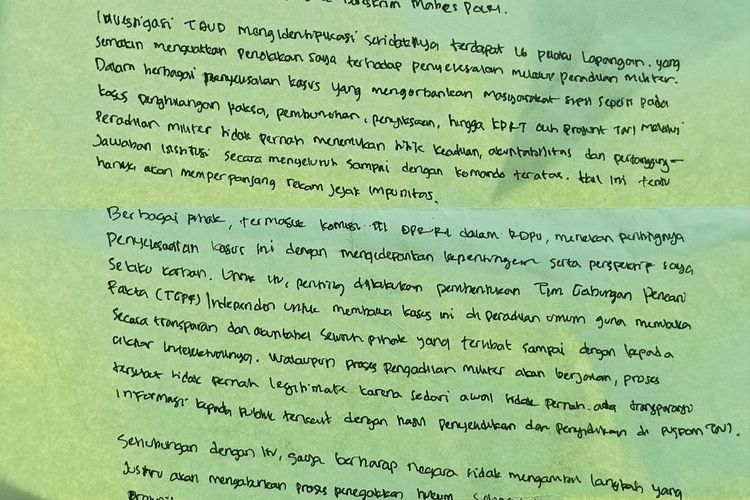 Bareskrim Mabes Polri.
Investigasi TAUD mengidentifikasi setidaknya terdapat 16 pelaku lapangan. yang
semakin menguatkan penolakan saya terhadap penyelesaian melalui peradilan militer.
Dalam berbagai penyelesaian kasus yang mengorbankan masyarakat sipil seperti pada
kasus penghilangan paksa, pembunuhan, penyiksaan, hingga KDRT oleh prajurit TNI melalui
Peradilan militer tidak pernah menemukan titik keadilan, akuntabilitas dan pertanggung-
Jawaban institusi secara menyeluruh sampai dengan komando teratas. Hal ini tentu
hanya akan memperpanjang rekam jejak impunitas.
Berbagai pihak, termasuk komisi III DPR RI dalam RDPU, menekan pentingnya
Penyelesaian kasus ini dengan mengedepankan kepentingan serta perspektif saya
selaku korban. Untuk itu, penting dilakukan pembentukan Tim Gabungan Pencari
Fakta (TGPF) Independen untuk membawa kasus ini di peradilan umum guna membuka
secara transparan dan akuntabel seluruh pihak yang terlibat sampai dengan kepada
aktor intelektualnya. Walaupun proses pengadilan militer akan berjalan, proses
tersebut tidak pernah legitimate karena sedari awal tidak pernah ada transparansi
Informasi kepada publik terkait dengan hasil penyelidikan dan penyidikan di puspom TNI.
Sehubungan dengan itu, saya berharap negara tidak mengambil langkah yang
Justru akan mengaburkan proses penegakkan hukum